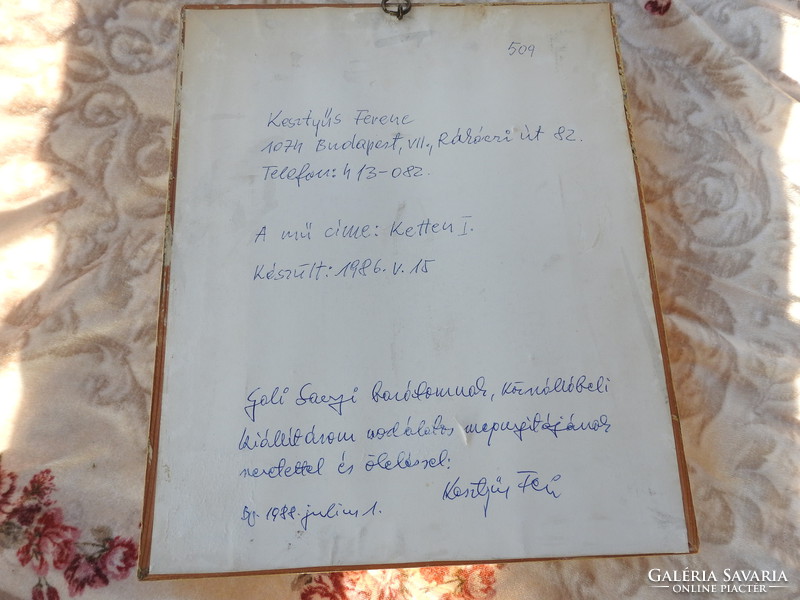 509
Kesztyűs Ferenc
1074 Budapest, VII., Rákóczi út 82.
Telefon: 413-082.
A mű címe: Ketten I.
Készült: 1986. V. 15
Gali barátomnak,
kiállításom csodálatos megnyitójának
szeretettel és öleléssel:
Kesztyűs Feri
Bp. 1988. július 1.
GALÉRIA SAVARIA
ONLINE PIACTÉR